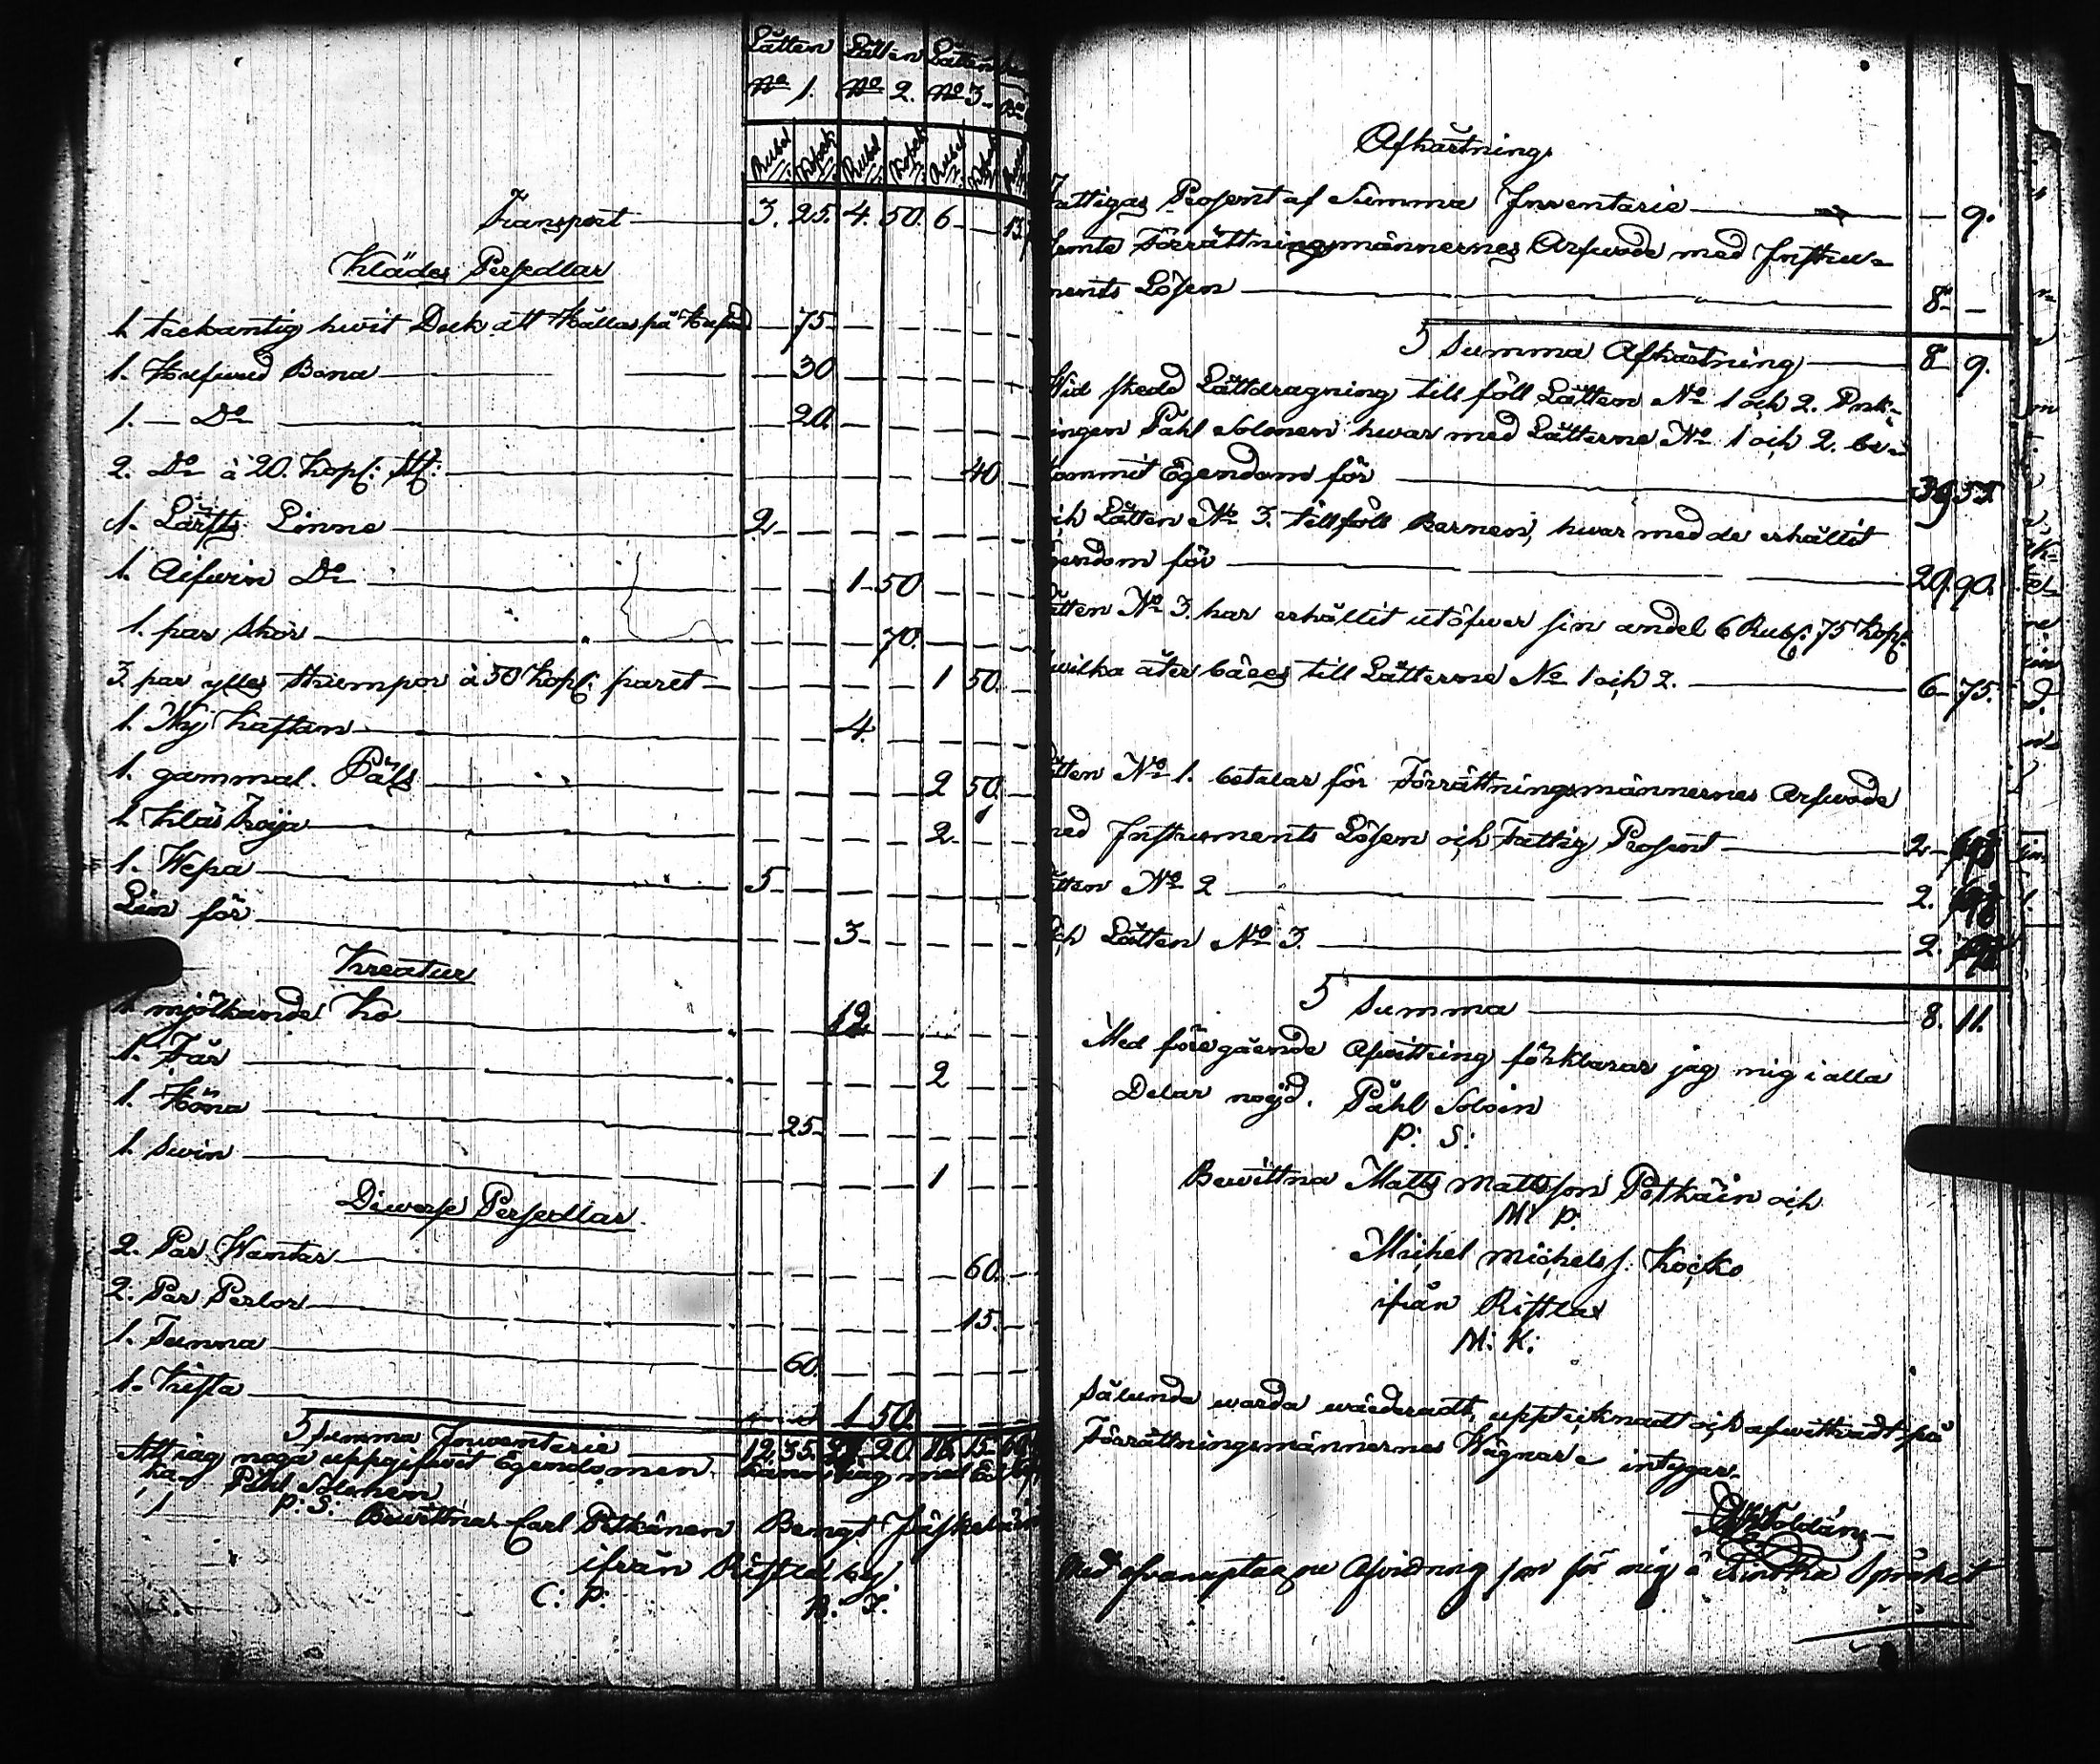 Lätten Lätten Lätten
No 1. No 2. No 3.
Rubel Kopek Rubel Kopek Rubel Kopek
Transport 3. 25. 4. 50. 6 — 13.
Klädes Persedlar
1. hwit Duk att Hålla på Hufwud — 75
1. Hufwud Bona — 30
1. — Do — 20.
2. Do à 20. Kop: St: — 40
1. Lärfts Linne — 2
1. Do — 1 50
1. par Skor — 70.
3 par ylles Strumpor à 50 Kop: paret — 1 50.
1. Ny Kaftan — 4.
1. gammal Päls — 2 50.
1. Kläs Tröija — 2
1. Wepa — 5
Lin för — 3
Kreatur
1. mjölkande Ko — 12
1. Får — 2
1. Höna — 25
1. Swin — 1
Diverse Persedlar
2. Par Wantar — 60.
2. Par Perlor — 15.
1. Tunna — 60.
1. Kista — 1 50
Summa Inventarie — 12. 35. 20. 15
Att jag noga uppgifwit Egendomen jag med Ed
P: S:
Bewittna Carl Petkänen Bengt
ifrån Ristla by
C: P. B. J.
Afkårtning
Fattigas Prosent af Summa Inventarie — 9.
Jemte Förrättningsmännernes Arfwode med Instru-
ments Lösen — 8 —
Summa Afkårtning — 8 9.
Wid skedd Låttdragning till föll Lätten No 1 och 2. Enk-
lingen Påhl hwar med Lätterne No 1 och 2. be-
kommit Egendom för — 39
och Lätten No 3. tillföll Barnen, hwar med de erhållit
Egendom för — 29. 90.
Lätten No 3. har erhållit utöfwer sin andel 6 Rub: 75 Kop:
hwilka åter bäres till Lätterne No 1 och 2. — 6 — 75.
Lätten No 1. betalar för Förrättningsmännernes Arfwode
med Instruments Lösen och Fattig Prosent — 2
Lätten No 2 — 2.
Och Lätten No 3. — 2.
Summa — 8. 11.
Med föregående Afwittring förklarar jag mig i alla
Delar nöjd. Påhl
P: S:
Bewittna Matts Mattsson Petkäin och
M: P.
Michel Michelss. Kocko
ifrån Ristla
M: K:
Sålunda warda wärderadt, uppteiknadt och afwittradt på
Förrättningsmännernes Wägnar intygar
Afvidring som för mig å Finska Språket